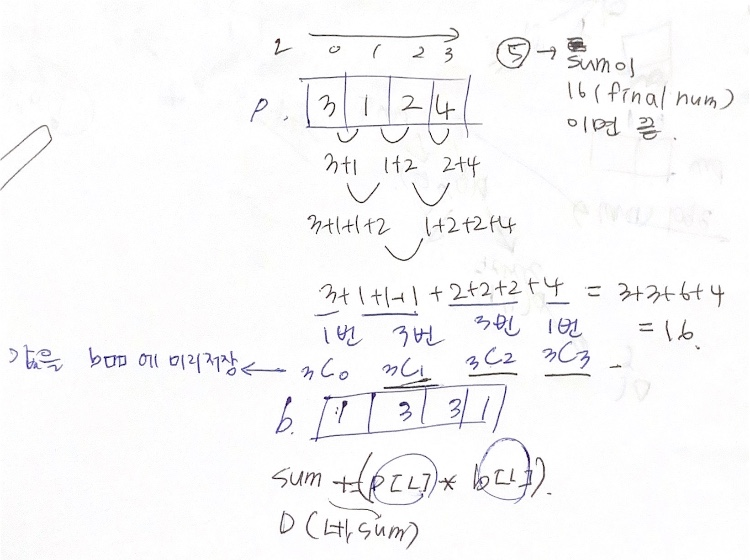 L 0 1 2 3
⑤ → sum이
16(final num)
이면 끝.
p. 3 1 2 4
3+1 1+2 2+4
3+1+1+2 1+2+2+4
3+1+1+1+2+2+2+4 = 3+3+6+4
1번 3번 3번 1번 = 16.
값을 b□□에 미리저장 ← 3C0 3C1 3C2 3C3
b. 1 3 3 1
sum += (p[L] * b[L]).
D(L+1, sum)